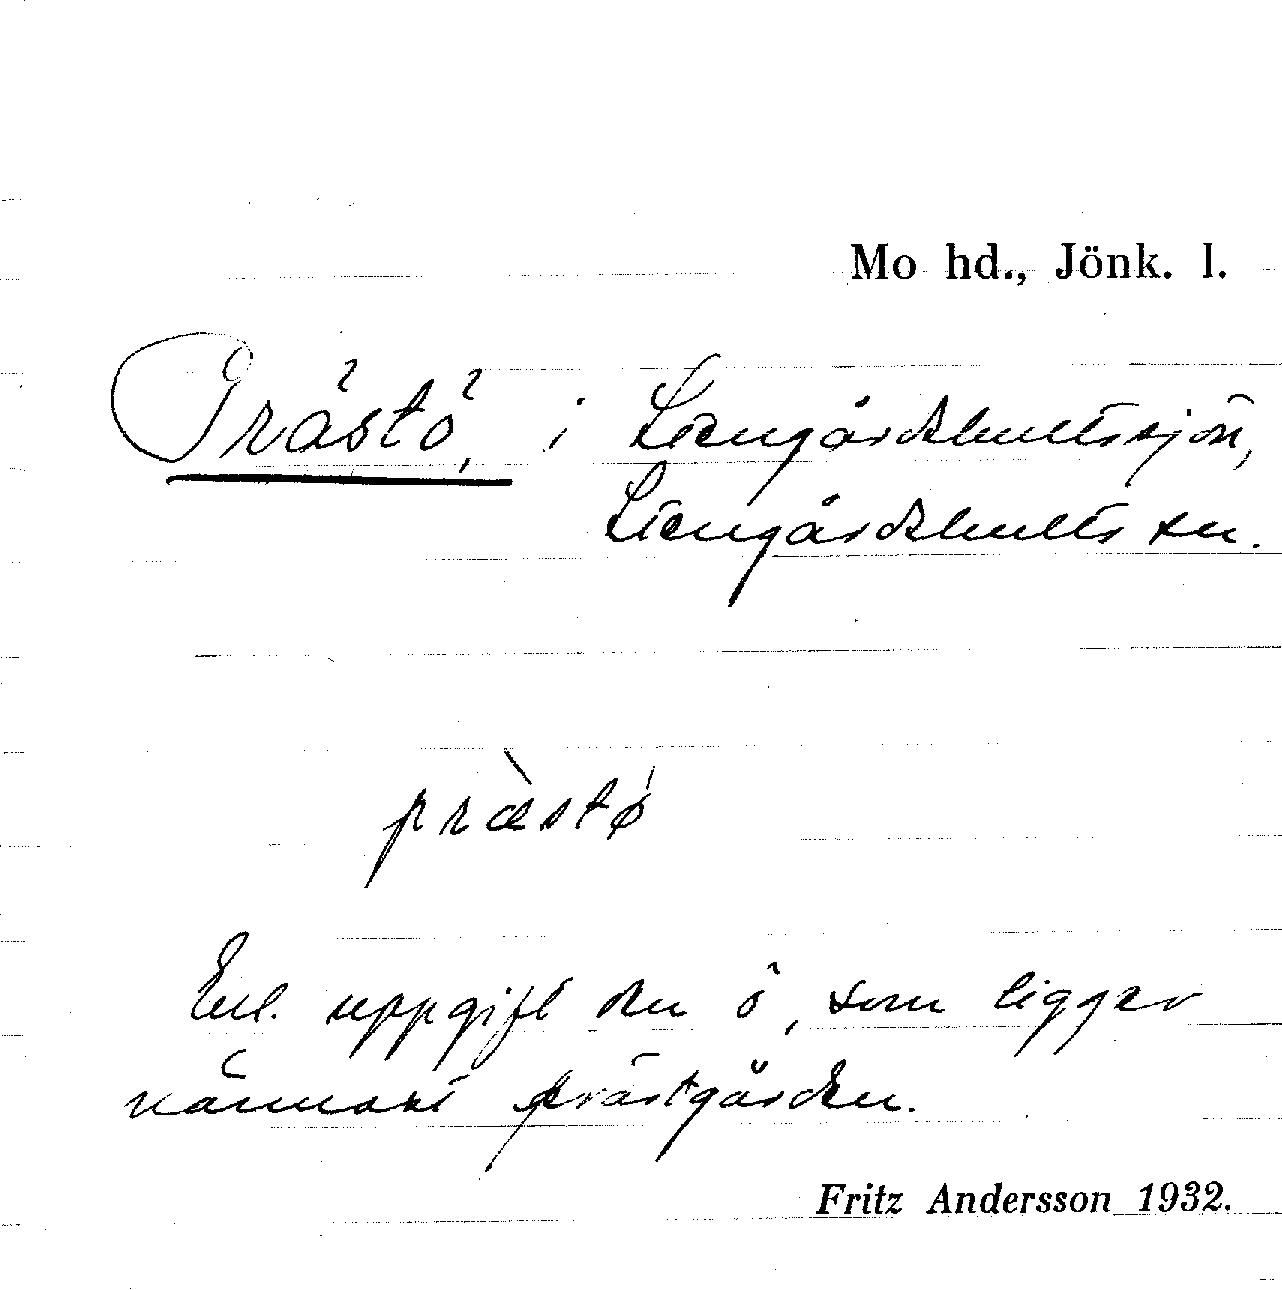 Mo hd., Jönk. l.
Prästö, i Stengårdshultssjön,
Stengårdshults sn.
pràstø´
Enl. uppgift den ö, som ligger
närmast prästgården.
Fritz Andersson 1932.